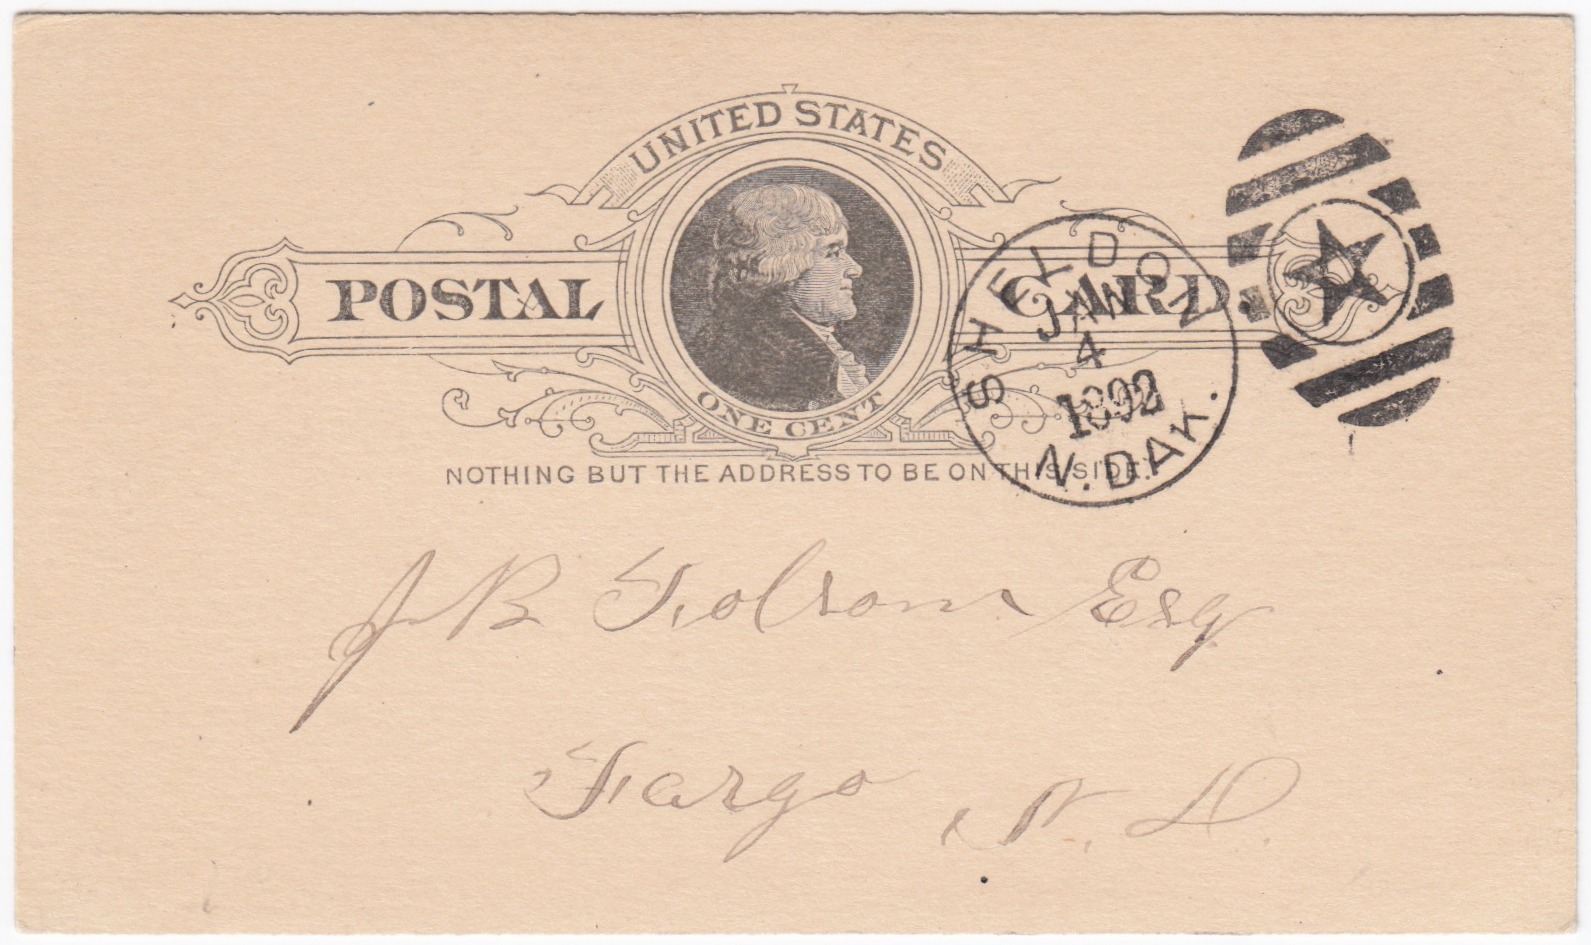 UNITED STATES
POSTAL CARD.
ONE CENT
NOTHING BUT THE ADDRESS TO BE ON THIS SIDE.
SHELDON
JAN
4
1892
N. DAK.
J B Folsom Esq
Fargo
N. D.